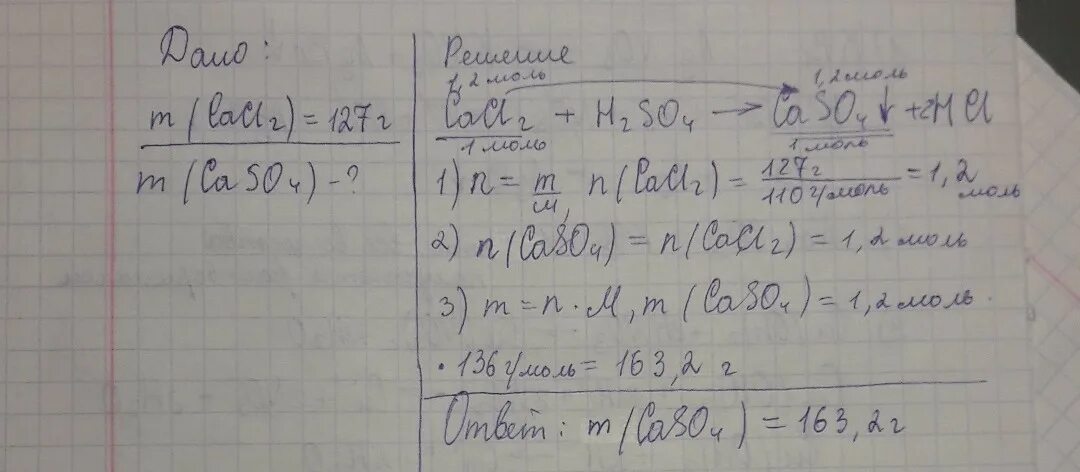 Дано:
m (CaCl₂) = 127 г
m (CaSO₄) - ?
Решение
1,2 моль 1,2 моль
CaCl₂ + H₂SO₄ → CaSO₄↓ + 2HCl
1 моль 1 моль
1) n = m/M, n (CaCl₂) = 127 г / 110 г/моль = 1,2 моль
2) n (CaSO₄) = n (CaCl₂) = 1,2 моль
3) m = n · M, m (CaSO₄) = 1,2 моль ·
· 136 г/моль = 163,2 г
Ответ: m (CaSO₄) = 163,2 г